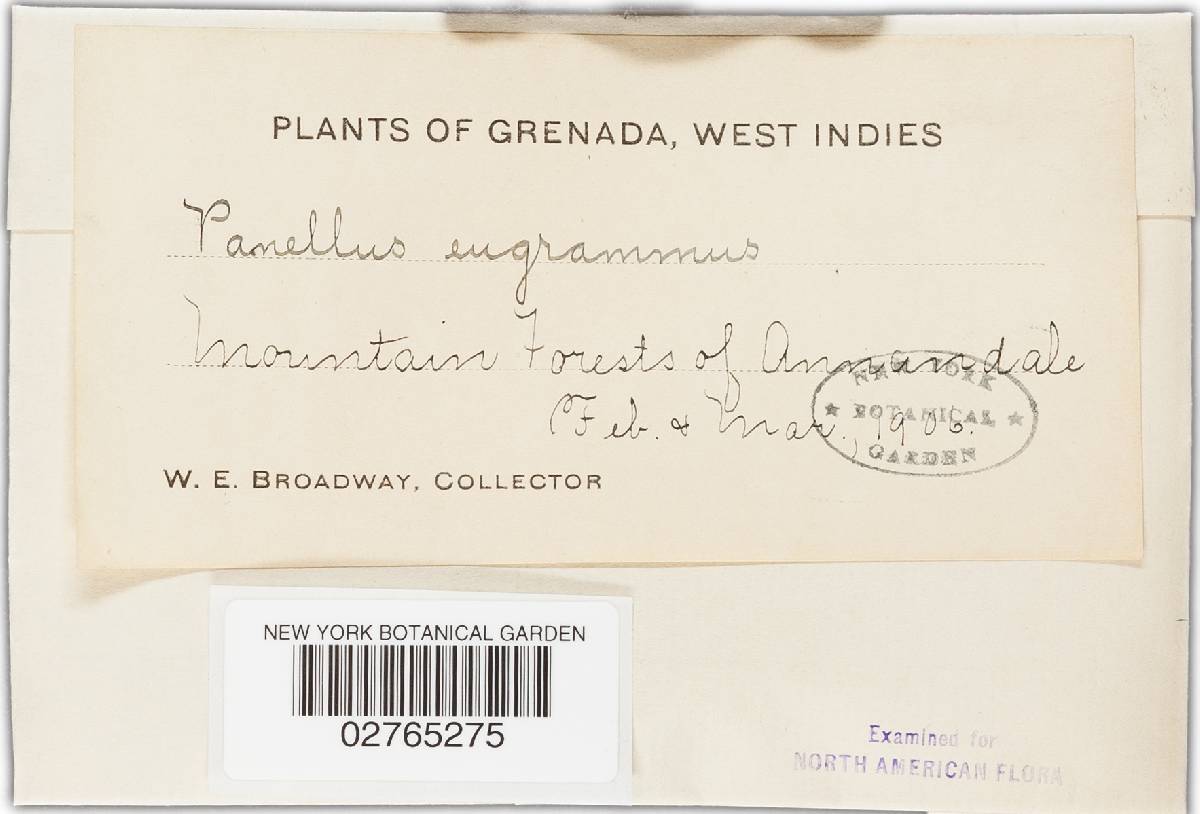 PLANTS OF GRENADA, WEST INDIES
Panellus eugrammus
Mountain Forests of Annandale
Feb. & Mar., 1906.
NEW YORK
★ BOTANICAL ★
GARDEN
W. E. BROADWAY, COLLECTOR
NEW YORK BOTANICAL GARDEN
02765275
Examined for
NORTH AMERICAN FLORA